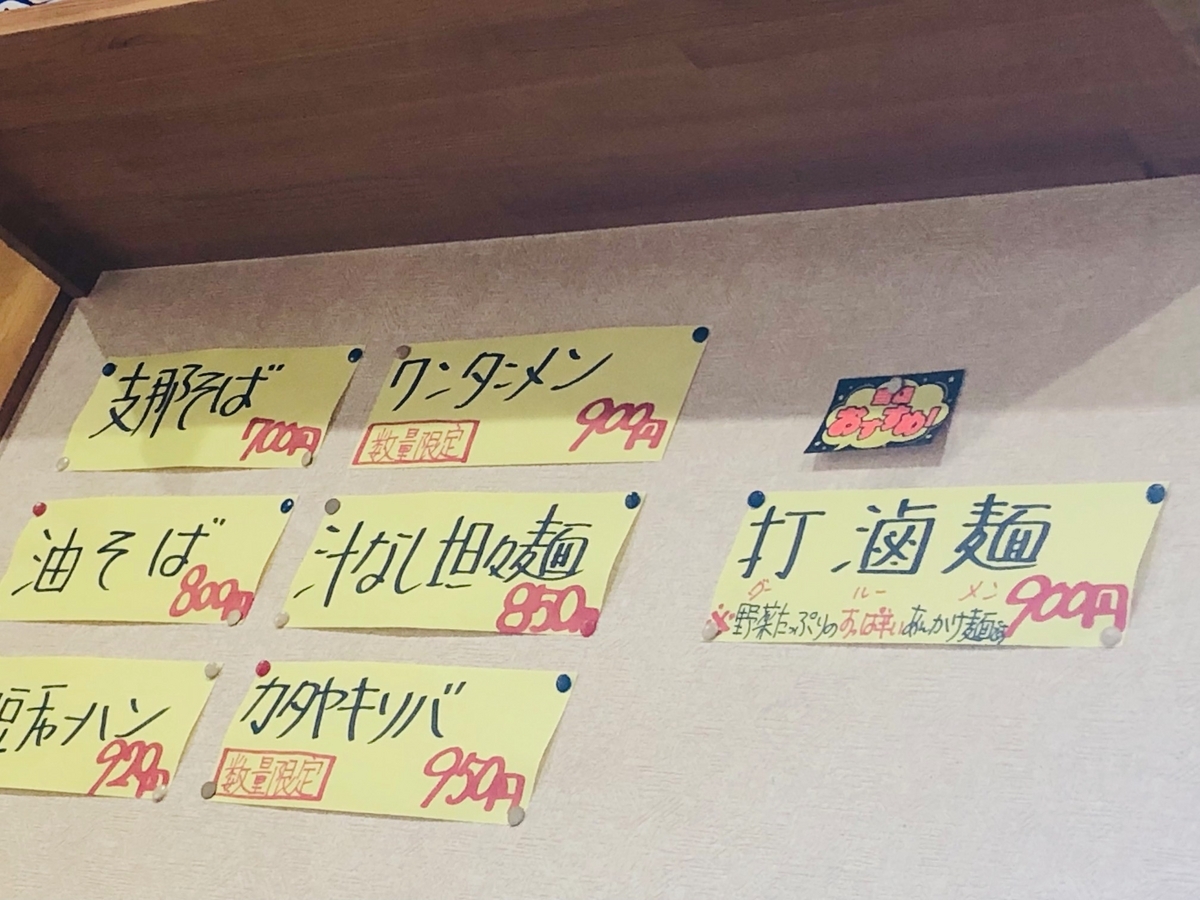 支那そば
700円
ワンタンメン
数量限定
900円
当店
おすすめ!
油そば
800円
汁なし坦々麺
850円
打滷麺
ダー ルー メン
※野菜たっぷりのすっぱ辛いあんかけ麺
900円
ハン
920円
カタヤキソバ
数量限定
950円